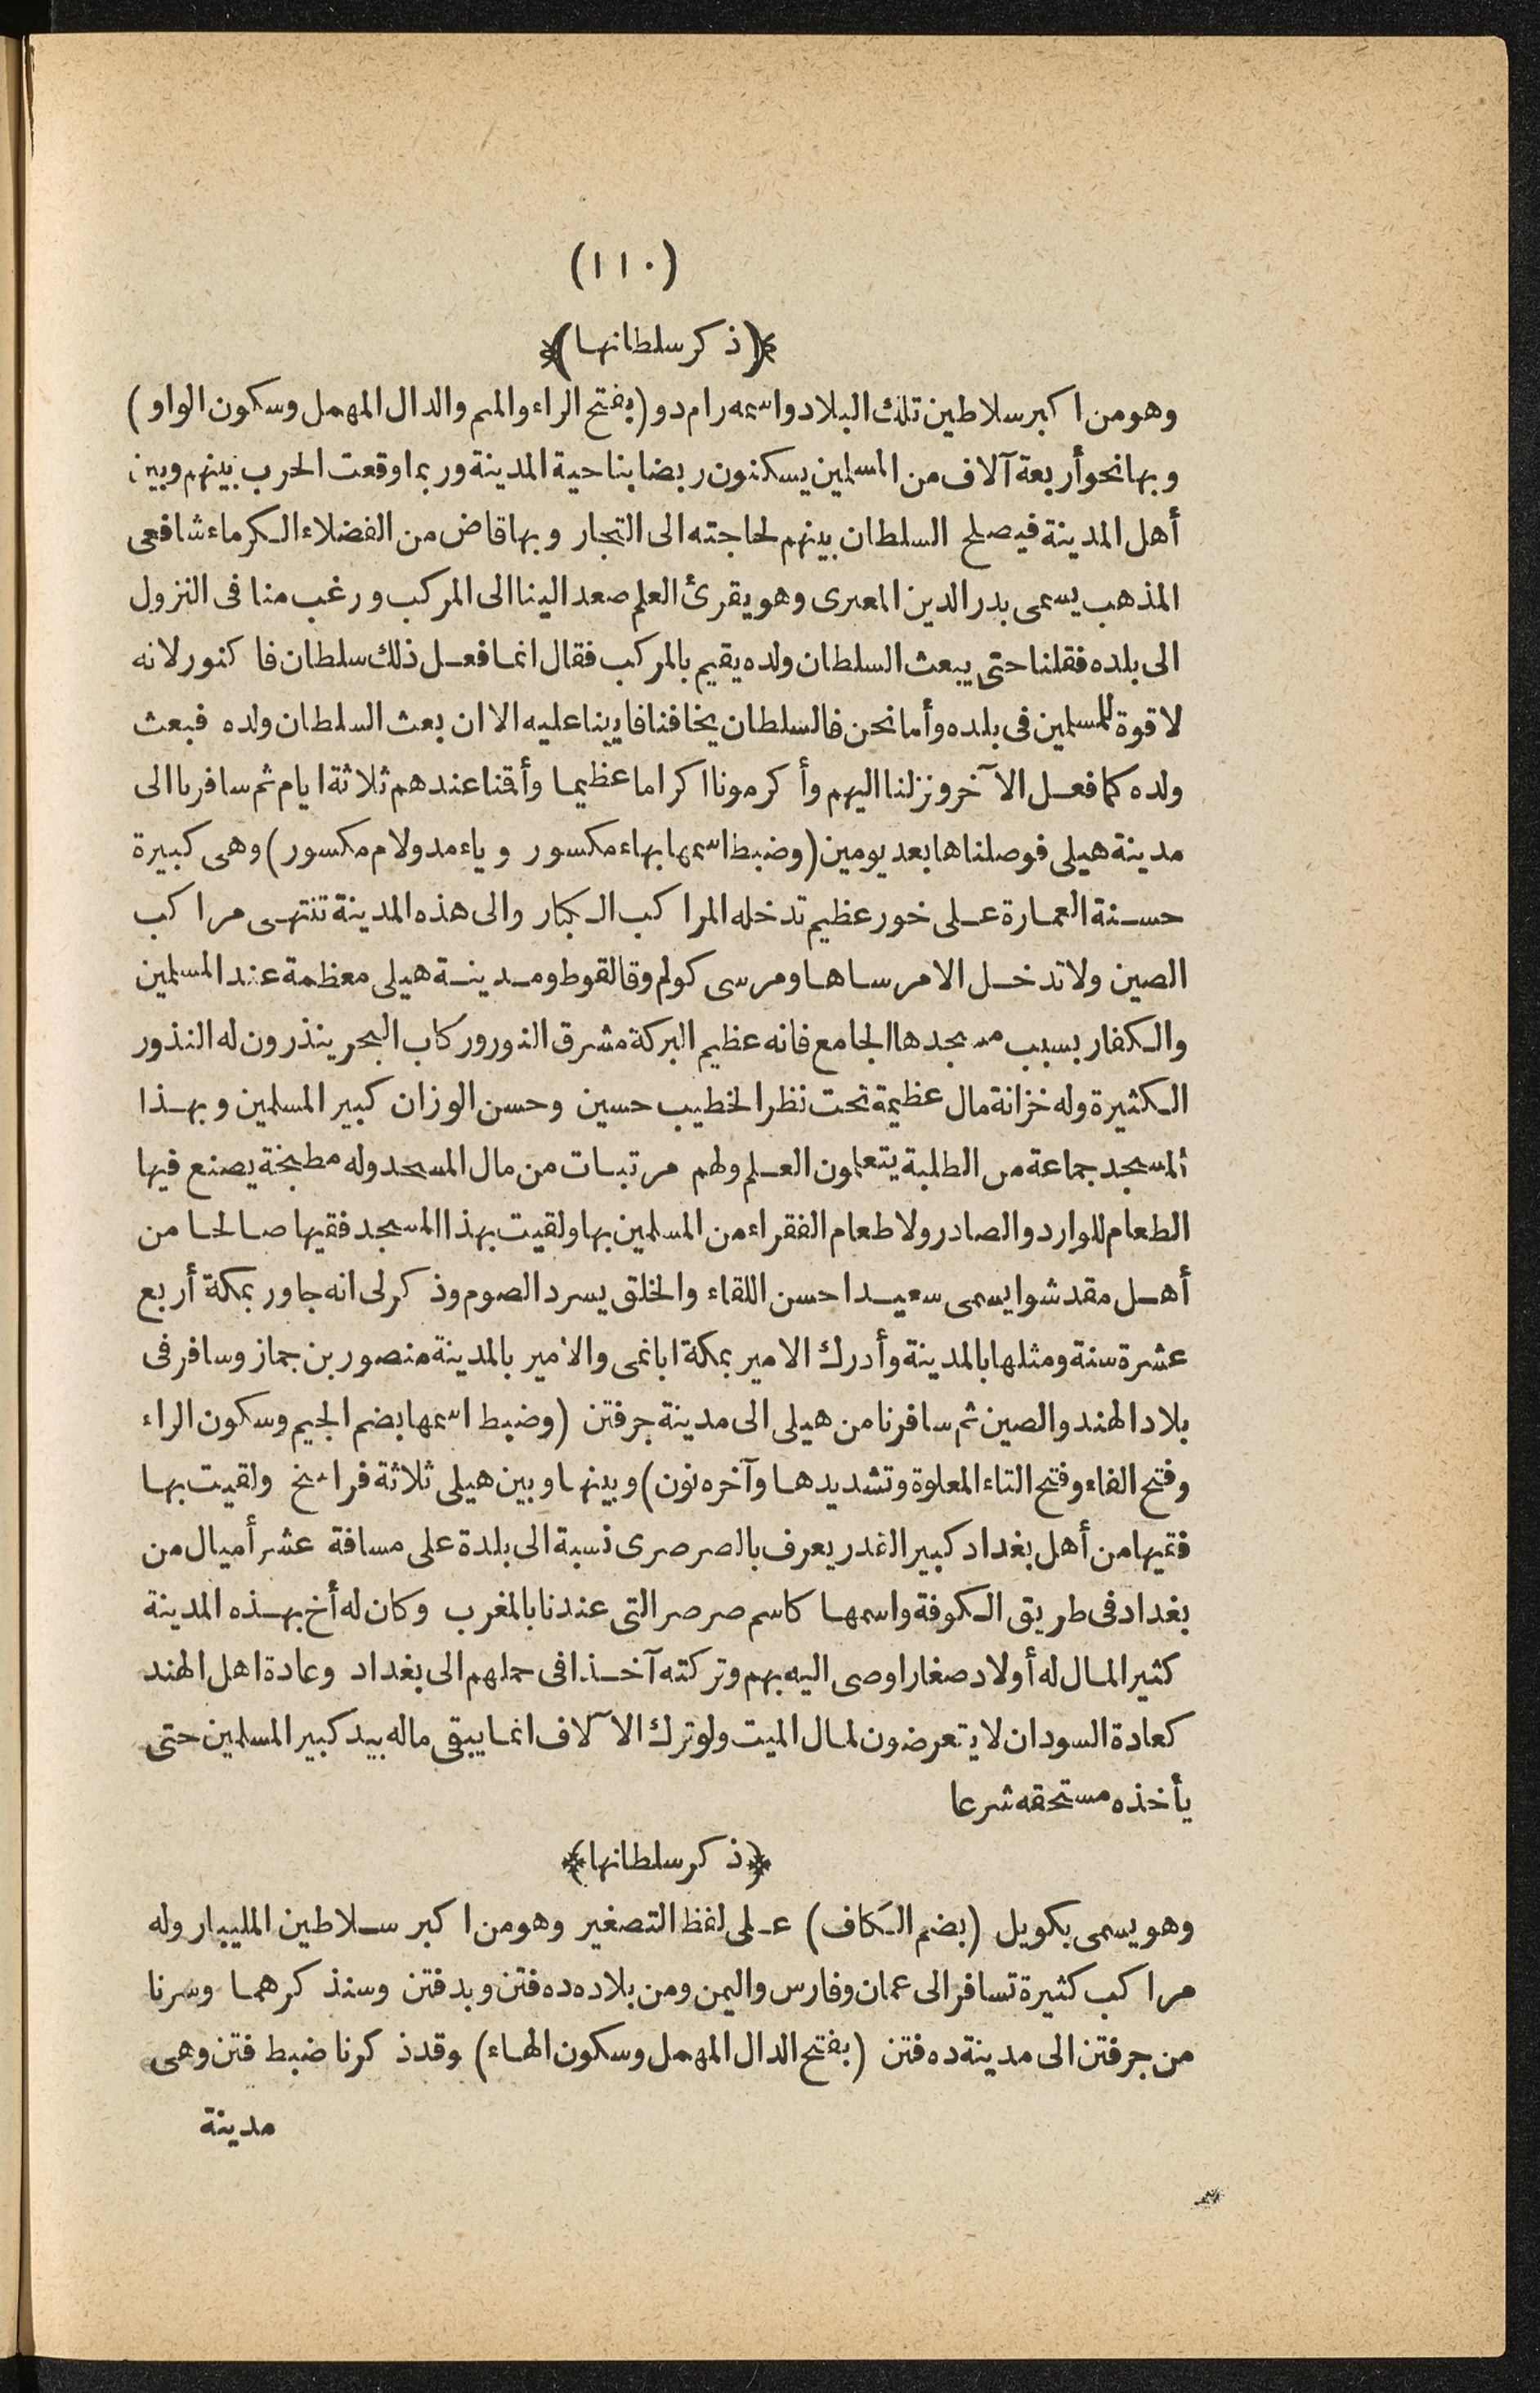 (١١٠)
﴿ذكر سلطانها﴾
وهو من اكبر سلاطين تلك البلاد واسمه رام دو (بفتح الراء والميم والدال المهمل وسكون الواو)
وبها نحو أربعة آلاف من المسلمين يسكنون ربضا بناحية المدينة وربما وقعت الحرب بينهم وبين
أهل المدينة فيصلح السلطان بينهم لحاجته الى التجار وبها قاض من الفضلاء الكرماء شافعى
المذهب يسمى بدر الدين المعبرى وهو يقرئ العلم صعد الينا الى المركب ورغب منا فى النزول
الى بلده فقلنا حتى يبعث السلطان ولده يقيم بالمركب فقال انما فعل ذلك سلطان فاكنور لانه
لا قوة للمسلمين فى بلده وأما نحن فالسلطان يخافنا فابينا عليه الا ان بعث السلطان ولده فبعث
ولده كما فعل الآخر ونزلنا اليهم وأكرمونا اكراما عظيما وأقمنا عندهم ثلاثة ايام ثم سافرنا الى
مدينة هيلى فوصلناها بعد يومين (وضبط اسمها بهاء مكسور وياء مد ولام مكسور) وهى كبيرة
حسنة العمارة على خور عظيم تدخله المراكب الكبار والى هذه المدينة تنتهى مراكب
الصين ولا تدخل الا مرساها ومرسى كولم وقالقوط ومدينة هيلى معظمة عند المسلمين
والكفار بسبب مسجدها الجامع فانه عظيم البركة مشرق النور وركاب البحر ينذرون له النذور
الكثيرة وله خزانة مال عظيمة تحت نظر الخطيب حسين وحسن الوزان كبير المسلمين وبهذا
المسجد جماعة من الطلبة يتعلمون العلم ولهم مرتبات من مال المسجد وله مطبخة يصنع فيها
الطعام للوارد والصادر ولاطعام الفقراء من المسلمين بها ولقيت بهذا المسجد فقيها صالحا من
أهل مقدشوا يسمى سعيدا حسن اللقاء والخلق يسرد الصوم وذكر لى انه جاور بمكة أربع
عشرة سنة ومثلها بالمدينة وأدرك الامير بمكة ابا نمى والامير بالمدينة منصور بن جماز وسافر فى
بلاد الهند والصين ثم سافرنا من هيلى الى مدينة جرفتن (وضبط اسمها بضم الجيم وسكون الراء
وفتح الفاء وفتح التاء المعلوة وتشديدها وآخره نون) وبينها وبين هيلى ثلاثة فراسخ ولقيت بها
فقيها من أهل بغداد كبير القدر يعرف بالصرصرى نسبة الى بلدة على مسافة عشر أميال من
بغداد فى طريق الكوفة واسمها كاسم صرصر التى عندنا بالمغرب وكان له أخ بهذه المدينة
كثير المال له أولاد صغار اوصى اليه بهم وتركته آخذا فى حملهم الى بغداد وعادة اهل الهند
كعادة السودان لا يتعرضون لمال الميت ولو ترك الآلاف انما يبقى ماله بيد كبير المسلمين حتى
يأخذه مستحقه شرعا
﴿ذكر سلطانها﴾
وهو يسمى بكويل (بضم الكاف) على لفظ التصغير وهو من اكبر سلاطين المليبار وله
مراكب كثيرة تسافر الى عمان وفارس واليمن ومن بلاده ده فتن وبدفتن وسنذكرهما وسرنا
من جرفتن الى مدينة ده فتن (بفتح الدال المهمل وسكون الهاء) وقد ذكرنا ضبط فتن وهى
مدينة